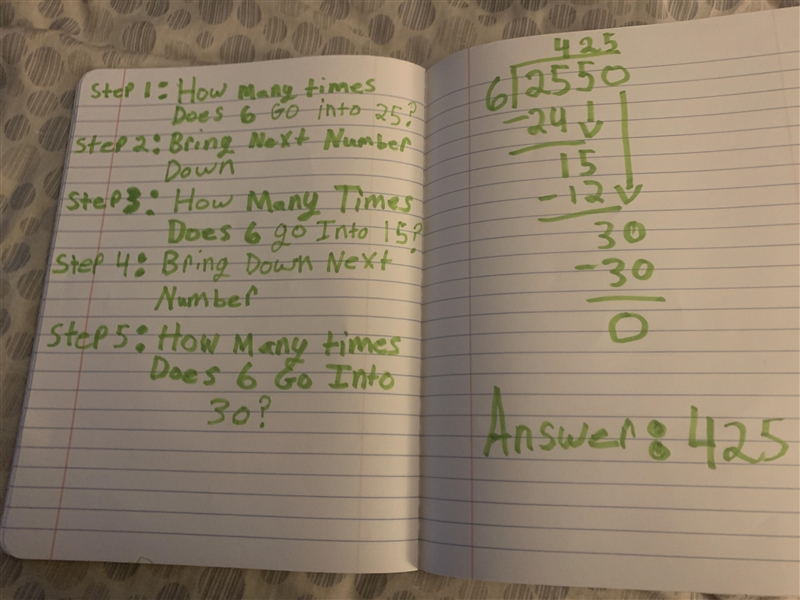 Step 1: How Many times
Does 6 Go into 25?
Step 2: Bring Next Number
Down
Step 3: How Many Times
Does 6 go Into 15?
Step 4: Bring Down Next
Number
Step 5: How Many times
Does 6 Go Into
30?
425
6 2550
-24
15
-12
30
-30
0
Answer: 425